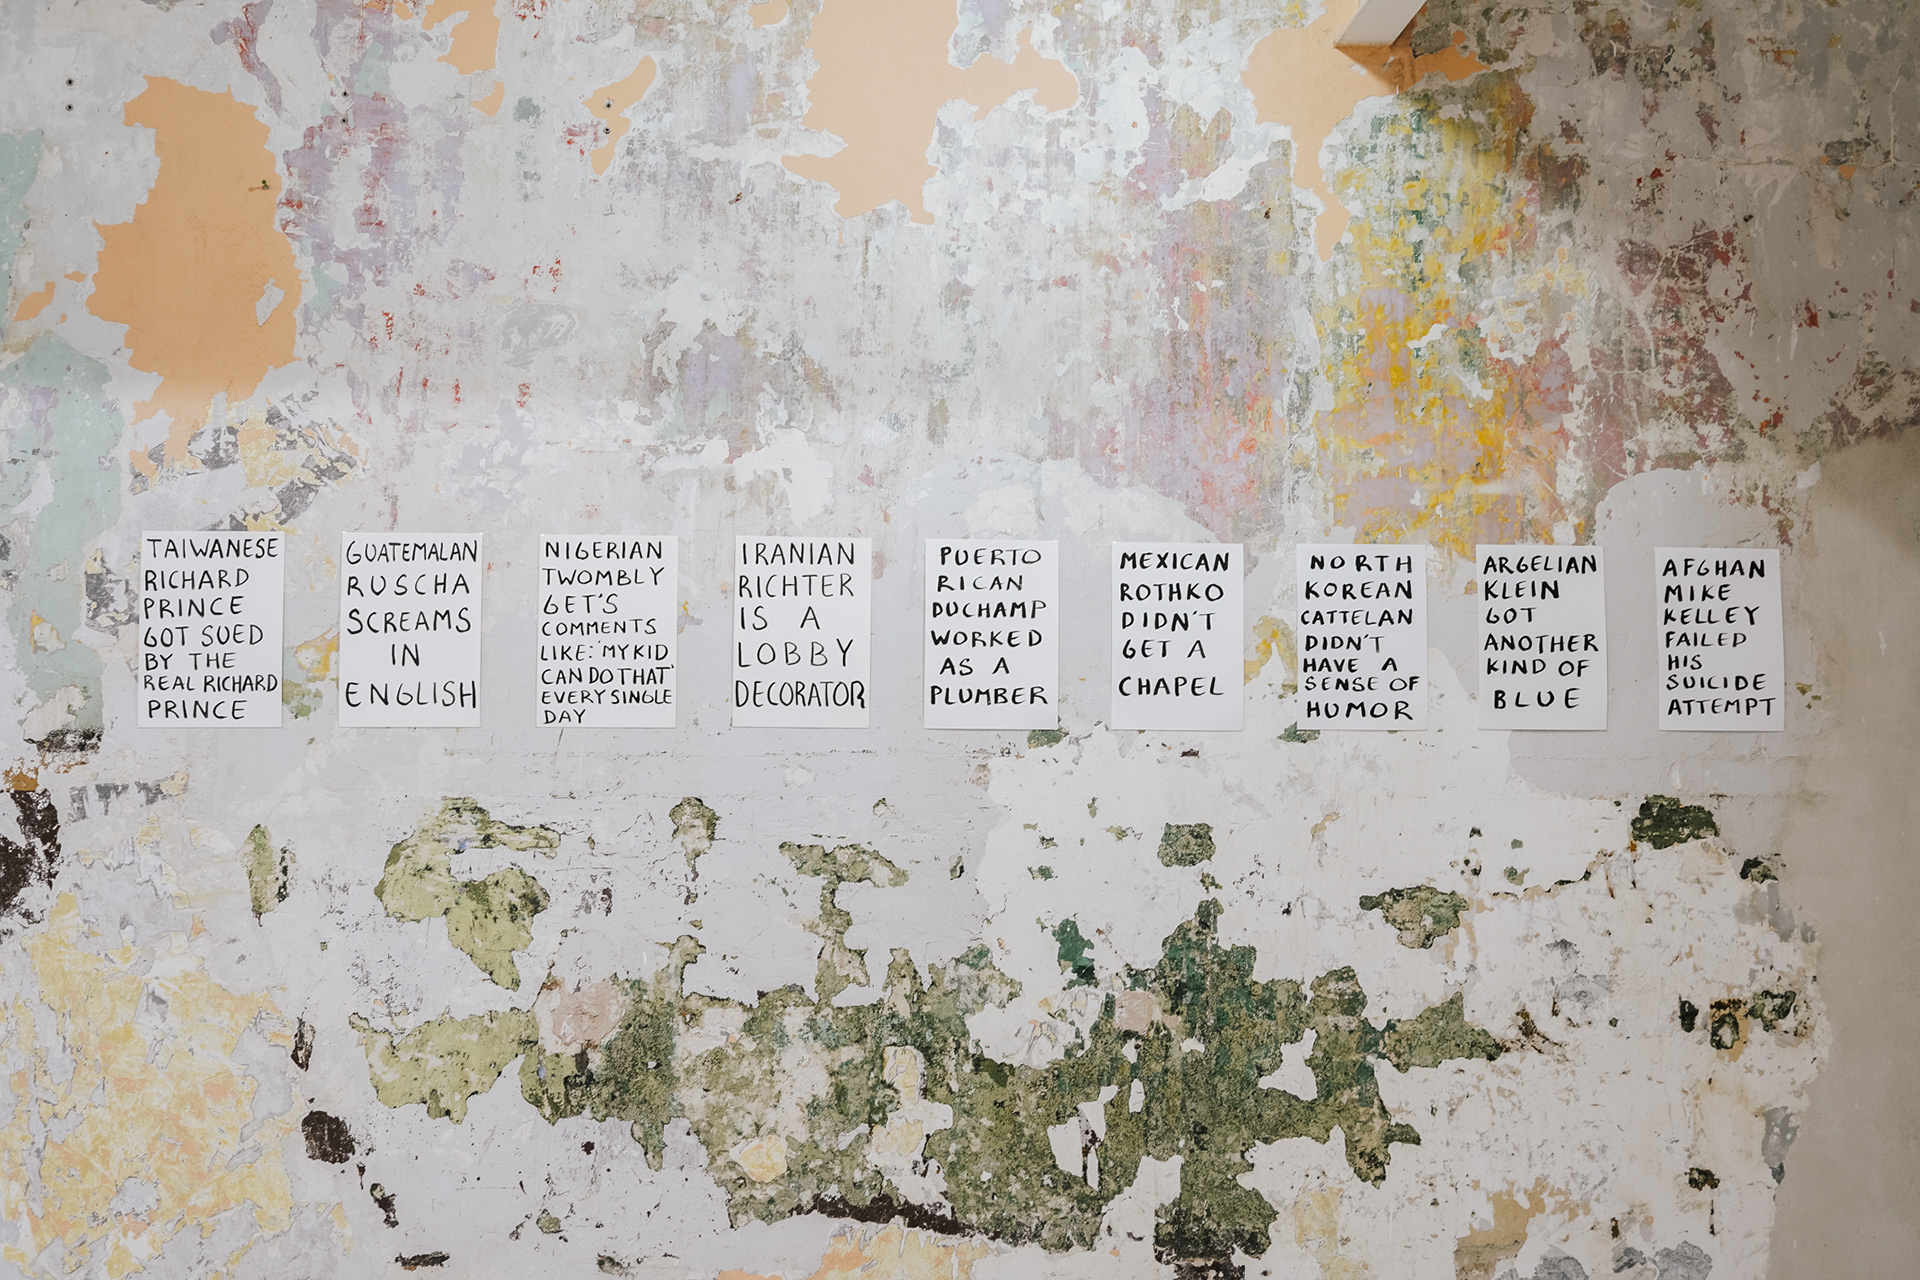 TAIWANESE
RICHARD
PRINCE
GOT SUED
BY THE
REAL RICHARD
PRINCE
GUATEMALAN
RUSCHA
SCREAMS
IN
ENGLISH
NIGERIAN
TWOMBLY
GET'S
COMMENTS
LIKE: 'MY KID
CAN DO THAT'
EVERY SINGLE
DAY
IRANIAN
RICHTER
IS A
LOBBY
DECORATOR
PUERTO
RICAN
DUCHAMP
WORKED
AS A
PLUMBER
MEXICAN
ROTHKO
DIDN'T
GET A
CHAPEL
NORTH
KOREAN
CATTELAN
DIDN'T
HAVE A
SENSE OF
HUMOR
ARGELIAN
KLEIN
GOT
ANOTHER
KIND OF
BLUE
AFGHAN
MIKE
KELLEY
FAILED
HIS
SUICIDE
ATTEMPT